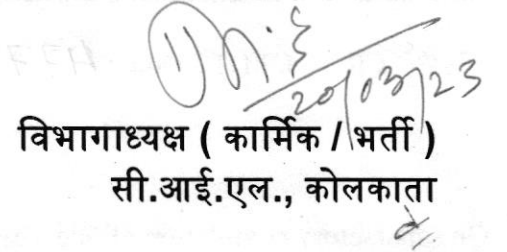 20/03/23
विभागाध्यक्ष ( कार्मिक / भर्ती )
सी.आई.एल., कोलकाता